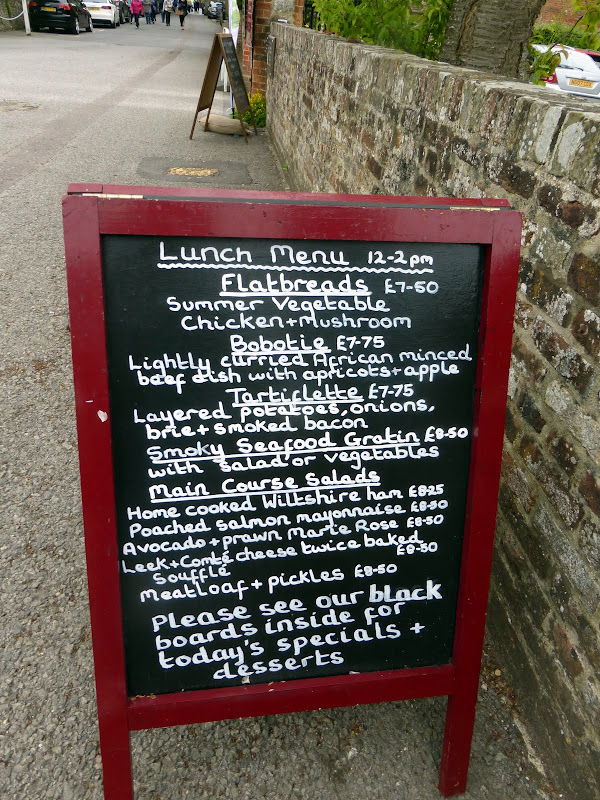 Lunch Menu 12-2pm
Flatbreads £7-50
Summer Vegetable
Chicken+mushroom
Bobotie £7-75
Lightly curried African minced
beef dish with apricots+apple
Tartiflette £7-75
Layered potatoes, onions,
brie + smoked bacon
Smoky Seafood Gratin £8-50
with salad or vegetables
Main Course Salads
Home cooked Wiltshire ham £8-25
Poached salmon mayonnaise £8-50
Avocado + prawn Marie Rose £8-50
Leek + Comté cheese twice baked
Soufflé £8-50
Meatloaf + pickles £8-50
Please see our black
boards inside for
today's specials +
desserts